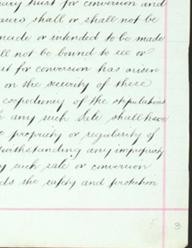 trust for conversion and
shall or shall not be
made or intended to be made
ll not be bound to see or
st for conversion has arisen
on the security of these
expediency of the stipulations
any such Sale shall have
propriety or regularity of
withstanding any impropriety
such sale or conversion
ds the safety and protection
3